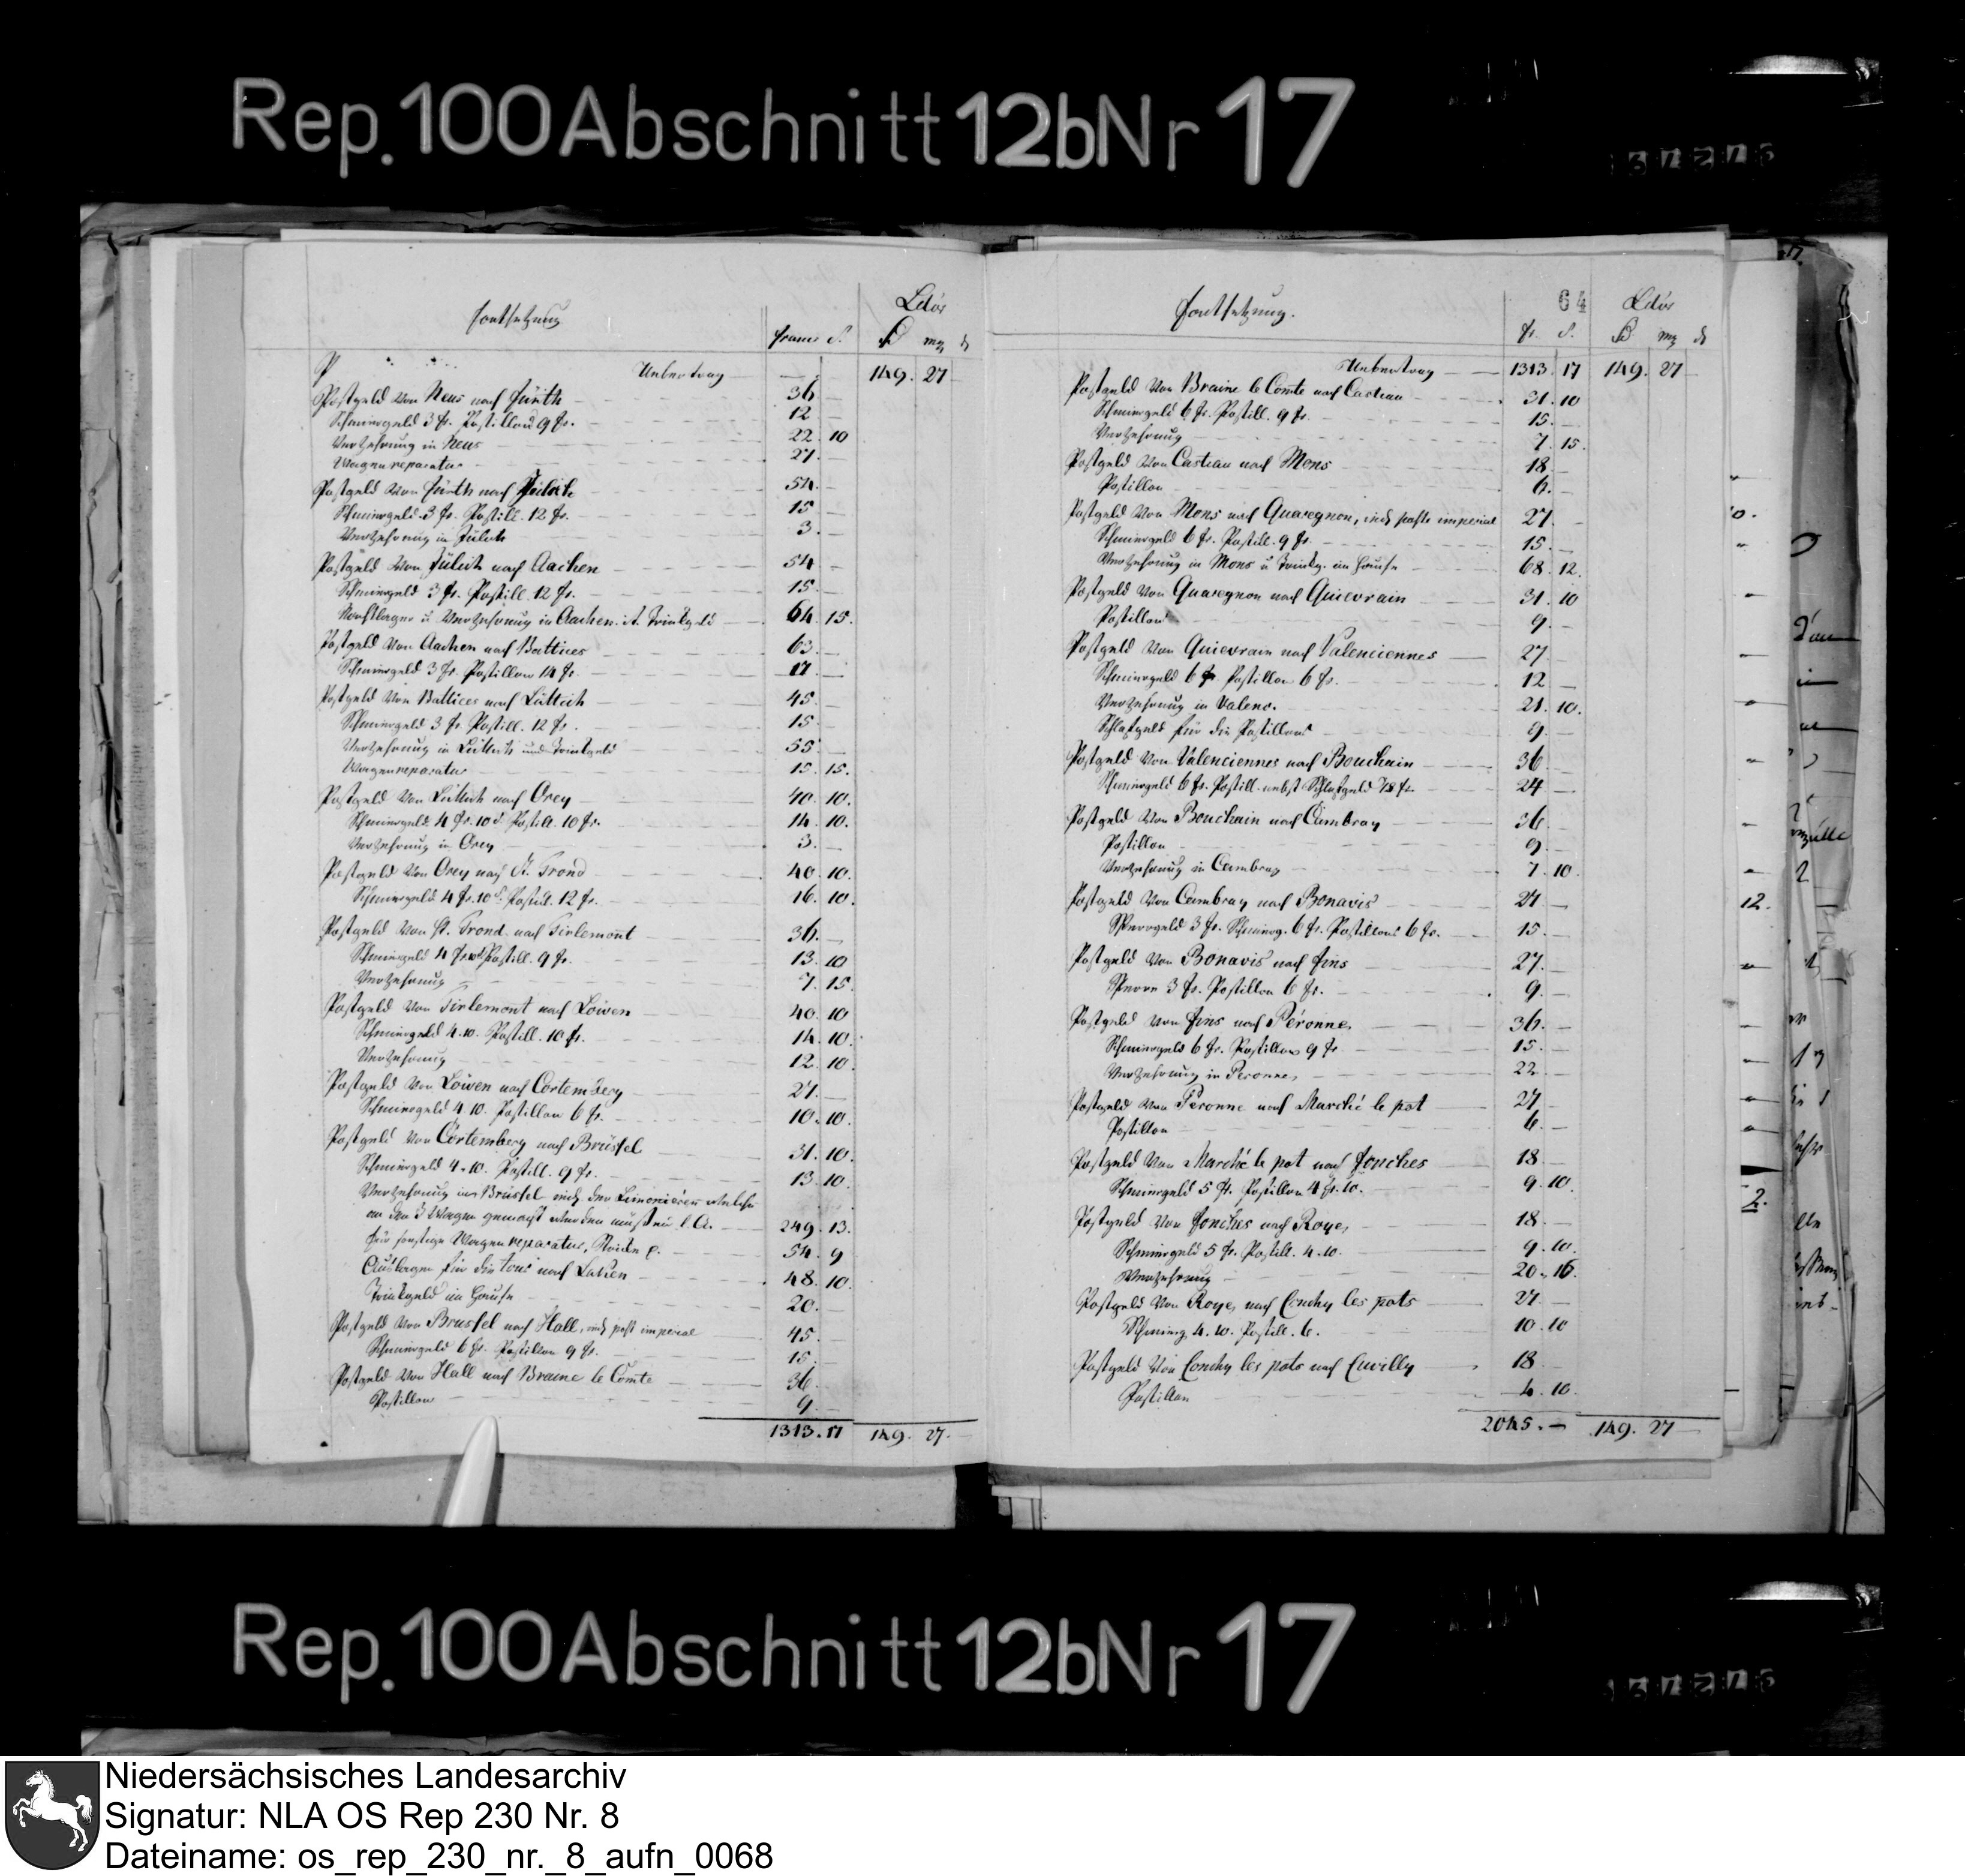 Rep. 100 Abschnitt 12b Nr 17
Fortsetzung
Ldòr
francs S.
mg d
Uebertrag — 149. 27
Postgeld von Neus nach Fürth 36
Schmiergeld 3 fr. Postillon 9 fr. 12
Verzehrung in Neus 22. 10
Wagenreparatur 27.
Postgeld von Fürth nach Jülich 54.
Schmiergeld 3 fr. Postill. 12 fr. 15
Verzehrung in Jülich 3.
Postgeld von Jülich nach Aachen 54
Schmiergeld 3 fr. Postill. 12 fr. 15.
Nachtlager u Verzehrung in Aachen. Trinkgeld 64. 15.
Postgeld von Aachen nach Battices 63.
Schmiergeld 3 fr. Postillon 14 fr. 17.
Postgeld von Battices nach Lüttich 45.
Schmiergeld 3 fr. Postill. 12 fr. 15
Verzehrung in Lüttich und Trinkgeld 55.
Wagenreparatur 15. 15.
Postgeld von Lüttich nach Orey 40. 10.
Schmiergeld 4 fr. 10 S. Postill. 10 fr. 14. 10.
Verzehrung in Orey 3.
Postgeld von Orey nach St. Trond 40. 10.
Schmiergeld 4 fr. 10 S. Postill. 12 fr. 16. 10.
Postgeld von St. Trond nach Tirlemont 36.
Schmiergeld 4 fr. 10 S. Postill. 9 fr. 13. 10
Verzehrung 7. 15
Postgeld von Tirlemont nach Löwen 40. 10
Schmiergeld 4. 10. Postill. 10 fr. 14. 10.
Verzehrung 12. 10
Postgeld von Löwen nach Cortemberg 27.
Schmiergeld 4 10. Postillon 6 fr. 10. 10.
Postgeld von Cortemberg nach Brüssel 31. 10.
Schmiergeld 4. 10. Postill. 9 fr. 13. 10.
Verzehrung in Brüssel incl. der welche
an den 3 Wagen gemacht werden müssen l. A. 249. 13.
für sonstige Wagenreparatur, 54. 9
Auslagen für die tour nach Laken 48. 10.
Trinkgeld im Hause 20.
Postgeld von Brussel nach Hall, incl. post imperial 45.
Schmiergeld 6 fr. Postillon 9 fr. 15.
Postgeld von Hall nach Braine le Comte 36.
Postillon 9.
1313. 17 149. 27.
Fortsetzung.
64
Ldòr
fr. S.
mg d
Uebertrag 1313. 17 149. 27
Postgeld von Braine le Comte nach Castiau 31. 10
Schmiergeld 6 fr. Postill. 9 fr. 15.
Verzehrung 7. 15.
Postgeld von Castiau nach Mons 18
Postillon 6.
Postgeld von Mons nach Quaregnon, incl. poste imperial 27.
Schmiergeld 6 fr. Postill. 9 fr. 15.
Verzehrung in Mons u Trinkg. im Hause 68. 12.
Postgeld von Quaregnon nach Quievrain 31. 10
Postillon 9.
Postgeld von Quievrain nach Valenciennes 27.
Schmiergeld 6 fr. Postillon 6 fr. 12
Verzehrung in Valenc. 21. 10.
Schlafgeld für die Postillons 9.
Postgeld von Valenciennes nach Bouchain 36
Schmiergeld 6 fr. Postill. nebst Schlafgeld 18 fr. 24
Postgeld von Bouchain nach Cambray 36.
Postillon 9
Verzehrung in Cambray 7. 10
Postgeld von Cambray nach Bonavis 27
Sperrgeld 3 fr. Schmierg. 6 fr. Postillons 6 fr. 15.
Postgeld von Bonavis nach Fins 27.
Sperre 3 fr. Postillon 6 fr. 9.
Postgeld von Fins nach Péronne, 36.
Schmiergeld 6 fr. Postillon 9 fr. 15.
Verzehrung in Peronne, 22.
Postgeld von Peronne nach Marché le pot 27
Postillon 6.
Postgeld von Marché le pot nach Fonches 18
Schmiergeld 5 fr. Postillon 4 fr. 10. 9. 10.
Postgeld von Fonches nach Roye, 18
Schmiergeld 5 fr. Postill. 4. 10. 9. 10.
Verzehrung 20. 16.
Postgeld von Roye, nach Conchy les pots 27.
Schmierg. 4. 10. Postill. 6. 10. 10
Postgeld von Conchy les pots nach Cuvilly 18
Postillon 4. 10.
2045. — 149. 27
Rep. 100 Abschnitt 12b Nr 17
Niedersächsisches Landesarchiv
Signatur: NLA OS Rep 230 Nr. 8
Dateiname: os_rep_230_nr._8_aufn_0068